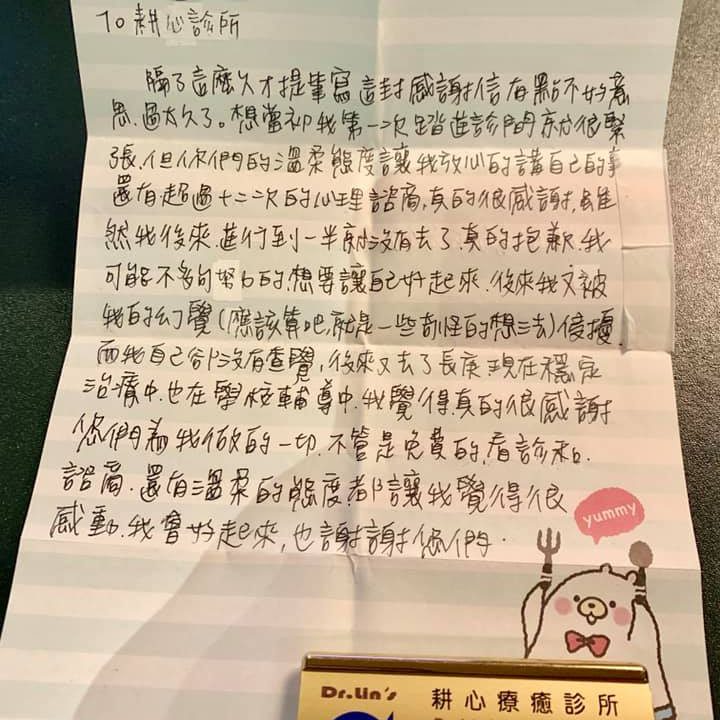 To 耕心診所
隔了這麼久才提筆寫這封感謝信有點不好意
思.過太久了。想當初我第一次踏進診間方就很緊
張.但你們的溫柔態度讓我放心的講自己的事
還有超過十二次的心理諮商,真的很感謝,雖
然我後來進行到一半就沒有去了真的抱歉.我
可能不夠努力的.想要讓自己好起來.後來我又被
我的幻覺(應該算吧,就是一些奇怪的想法)侵擾.
而我自己卻沒有查覺,後來又去了長庚現在穩定
治療中.也在學校輔導中.我覺得真的很感謝
您們為我做的一切.不管是免費的,看診和.
諮商.還有溫柔的態度.都讓我覺得很
感動.我會好起來,也謝謝您們.
yummy
Dr.Lin's 耕心療癒診所